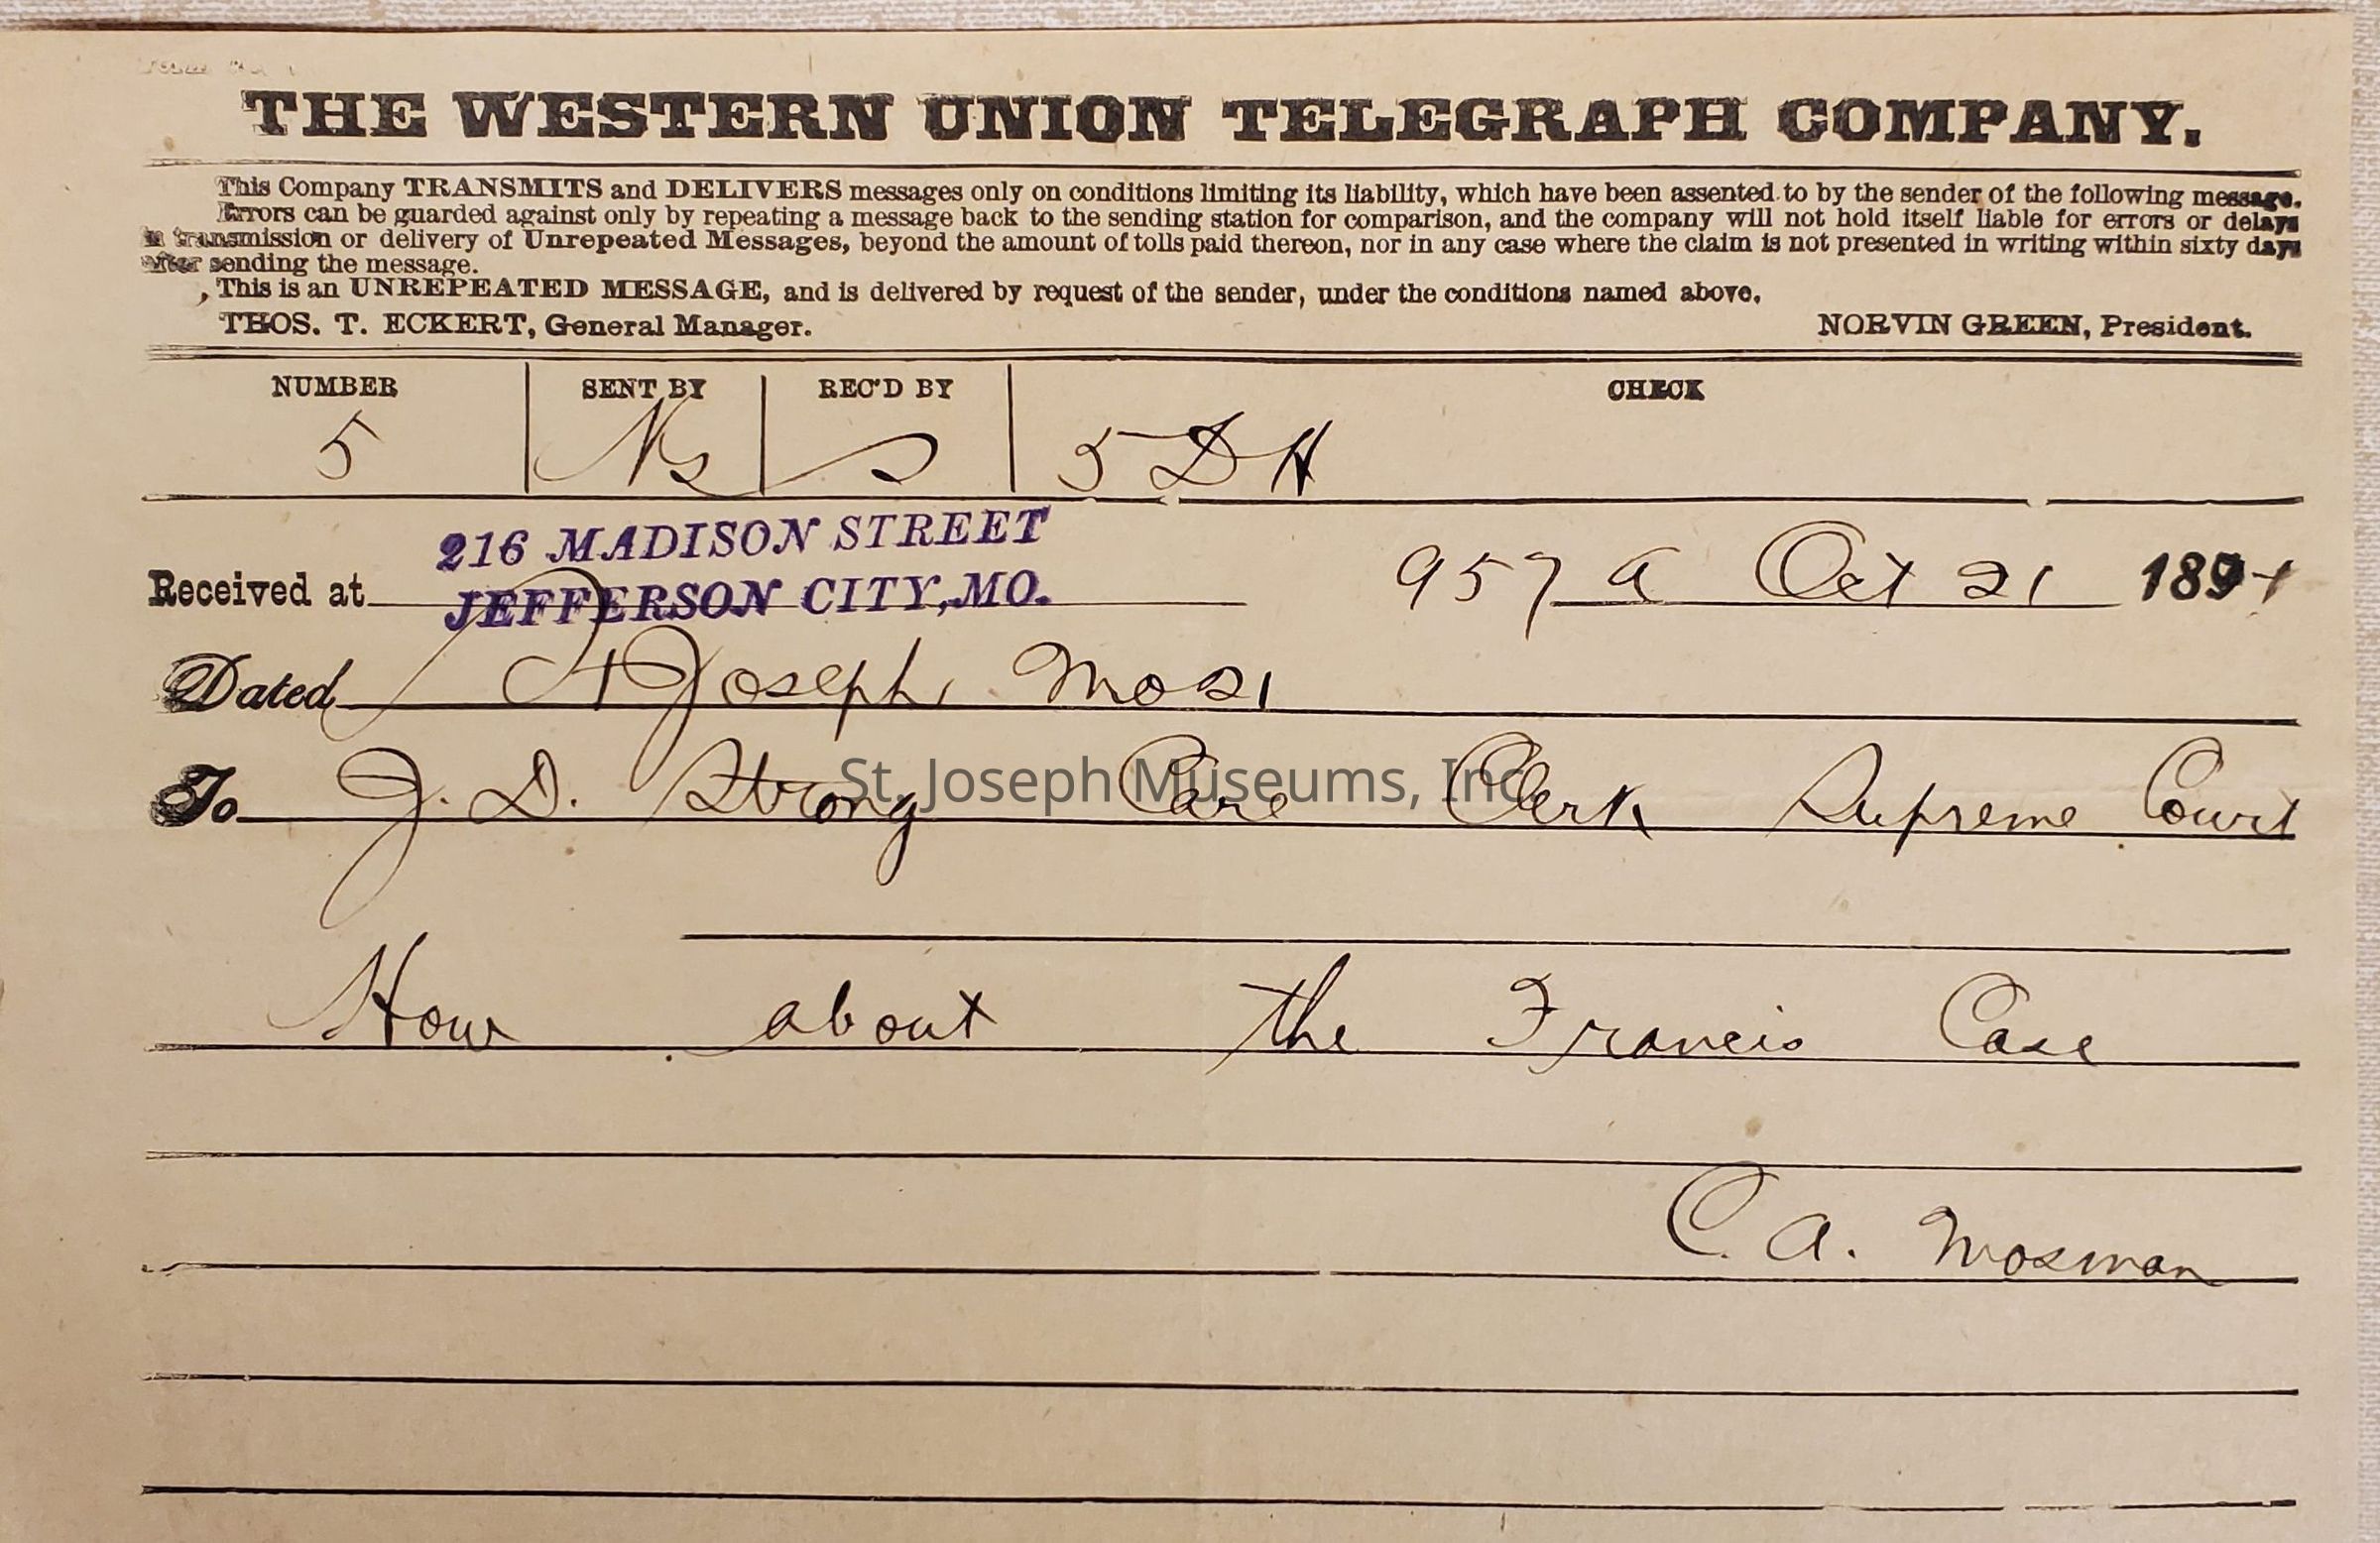 THE WESTERN UNION TELEGRAPH COMPANY.
This Company TRANSMITS and DELIVERS messages only on conditions limiting its liability, which have been assented to by the sender of the following message.
Errors can be guarded against only by repeating a message back to the sending station for comparison, and the company will not hold itself liable for errors or delays
in transmission or delivery of Unrepeated Messages, beyond the amount of tolls paid thereon, nor in any case where the claim is not presented in writing within sixty days
after sending the message.
This is an UNREPEATED MESSAGE, and is delivered by request of the sender, under the conditions named above.
THOS. T. ECKERT, General Manager. NORVIN GREEN, President.
NUMBER SENT BY REC'D BY CHECK
5 5 DH
216 MADISON STREET
Received at JEFFERSON CITY, MO. 957 a Oct 21 1891
Dated St Joseph, Mo 21
To J. D. Strong Care Clerk Supreme Court
St. Joseph Museums, Inc.
How about the Francis Case
C. A. Mosman